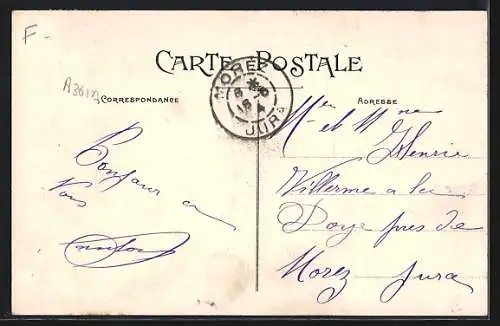 F-
CARTE POSTALE
A3619
CORRESPONDANCE
ADRESSE
MOREZ
JURA
Bonjour a
Vous
Mr et Mme
Henri
Villerme a la
Doye près de
Morez Jura